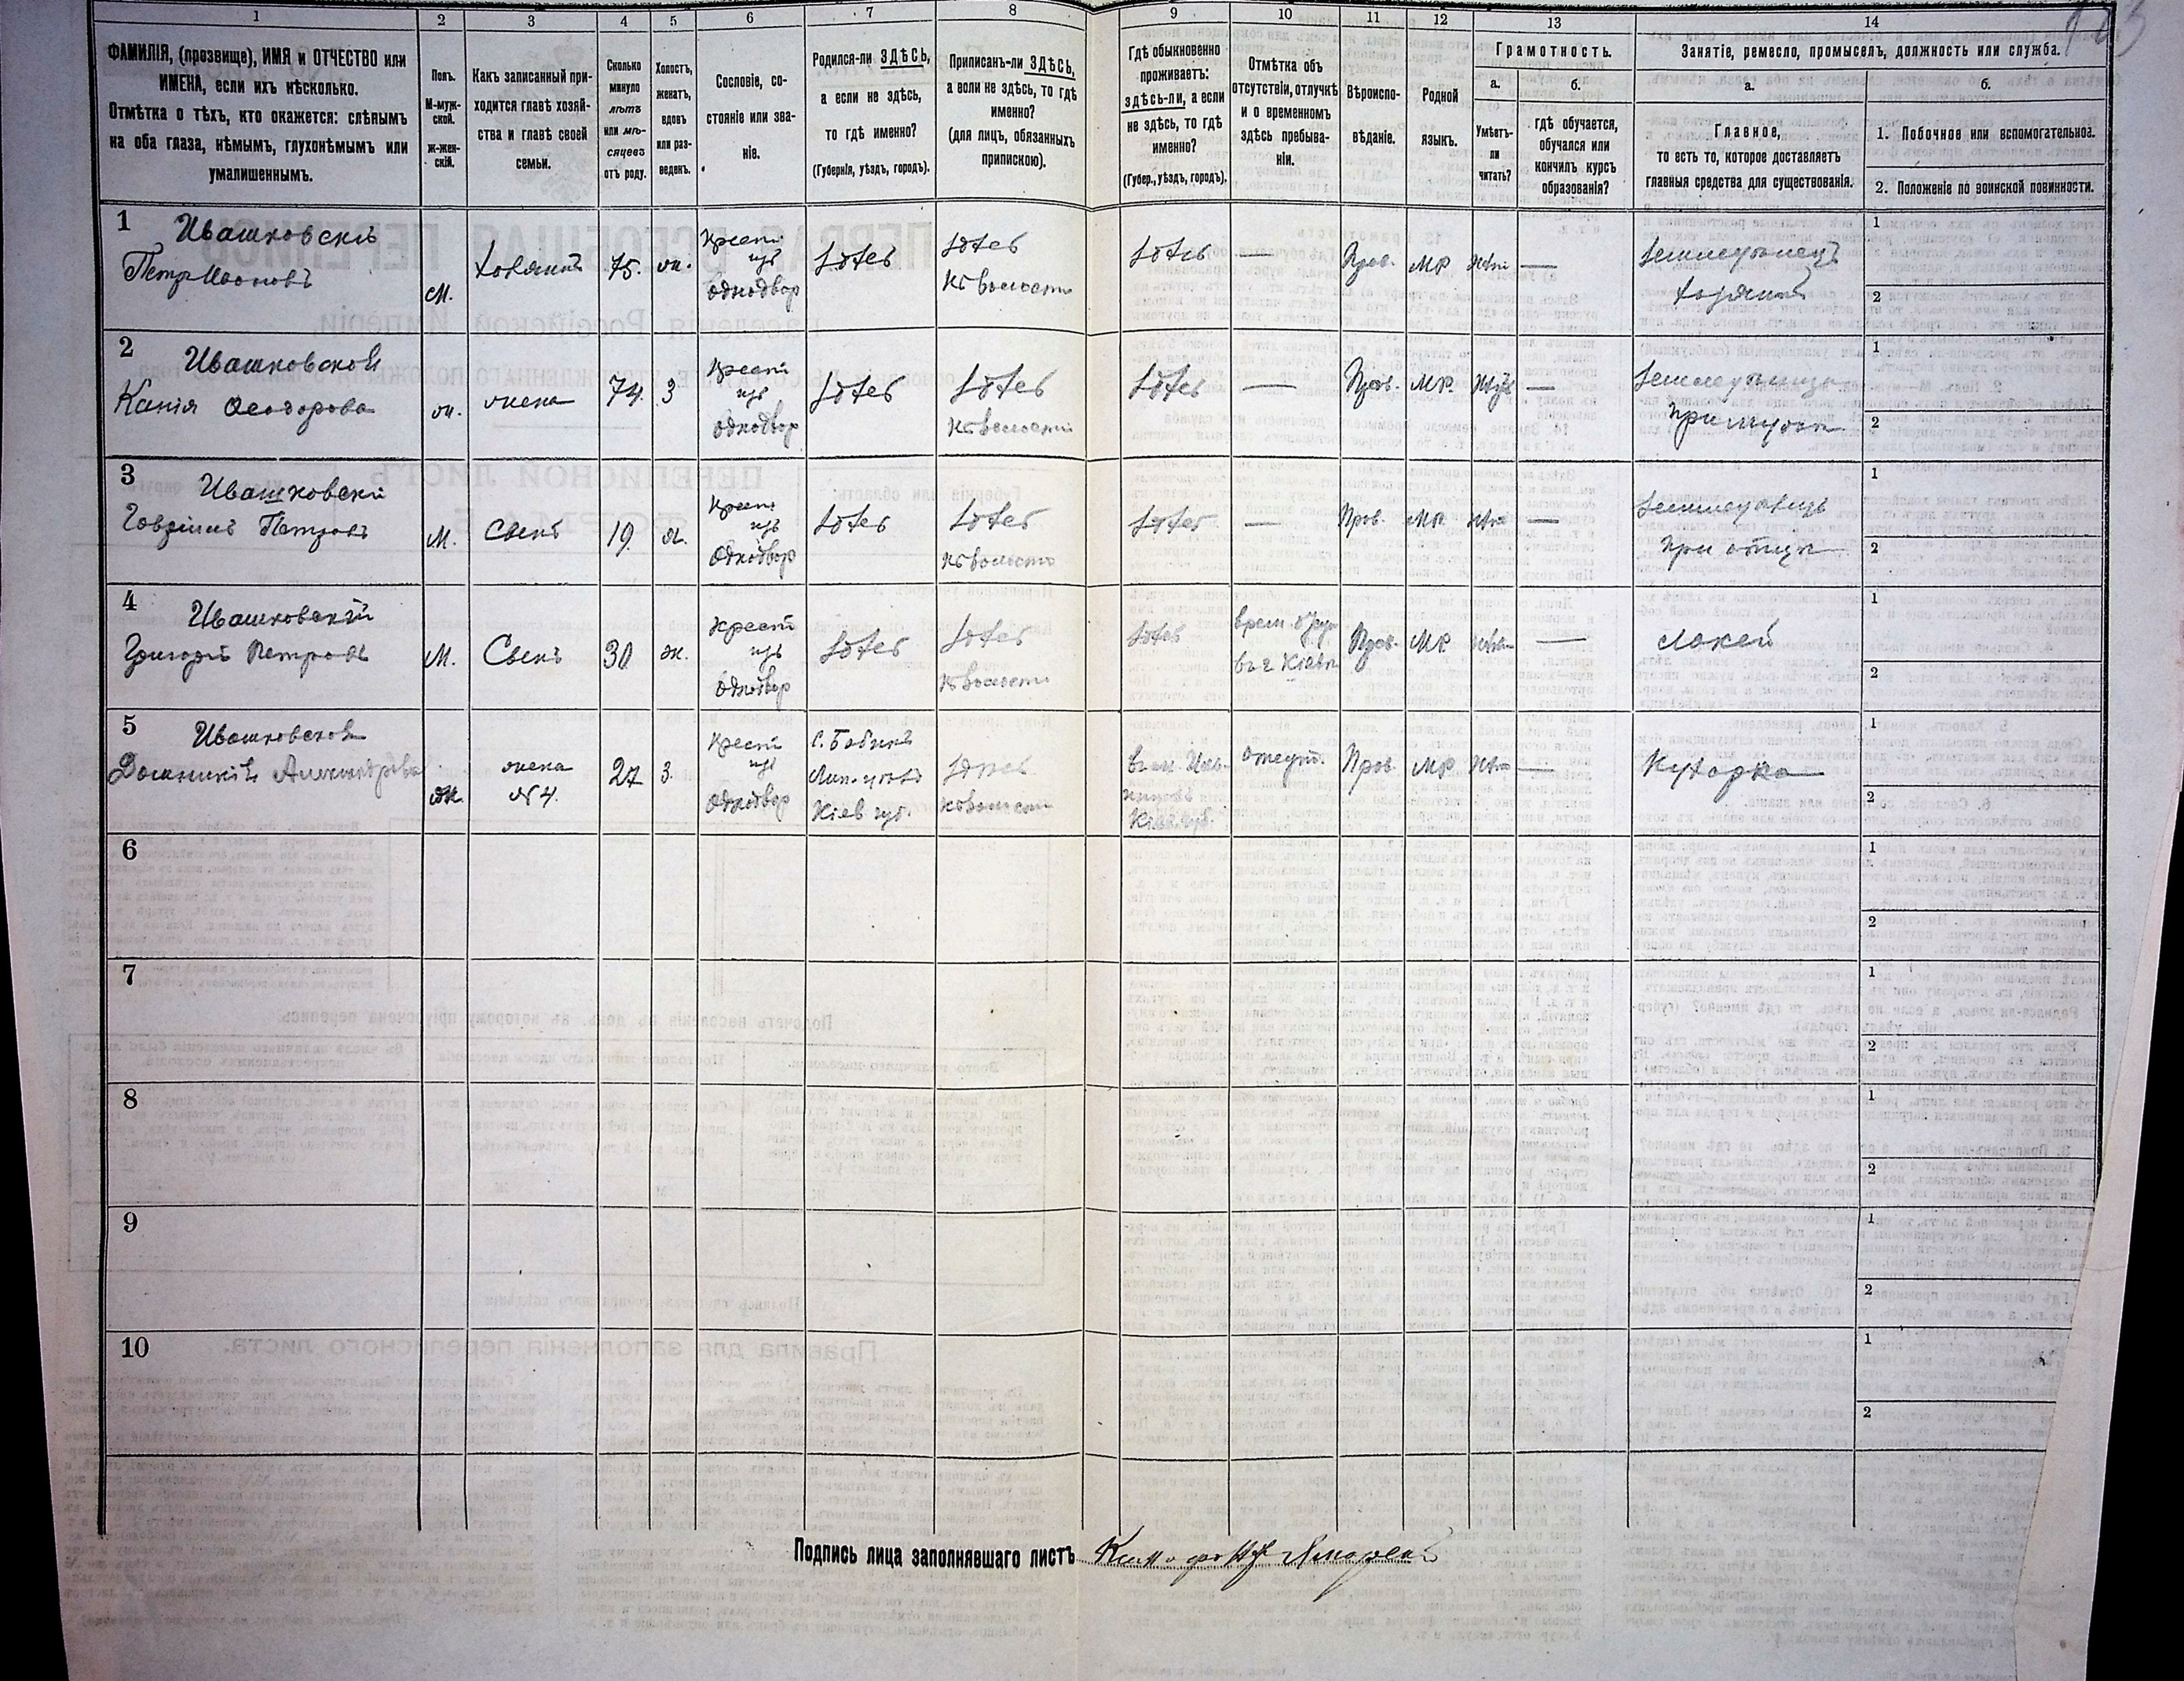 1 2 3 4 5 6 7 8 9 10 11 12 13 14
ФАМИЛІЯ, (прозвище), ИМЯ и ОТЧЕСТВО или
ИМЕНА, если ихъ нѣсколько.
Отмѣтка о тѣхъ, кто окажется: слѣпымъ
на оба глаза, нѣмымъ, глухонѣмымъ или
умалишеннымъ.
Полъ.
М-муж-
ской.
ж-жен-
скій.
Какъ записанный при-
ходится главѣ хозяй-
ства и главѣ своей
семьи.
Сколько
минуло
лѣтъ
или мѣ-
сяцевъ
отъ роду.
Холостъ,
женатъ,
вдовъ
или раз-
веденъ.
Сословіе, со-
стояніе или зва-
ніе.
Родился-ли ЗДѢСЬ,
а если не здѣсь,
то гдѣ именно?
(Губернія, уѣздъ, городъ).
Приписанъ-ли ЗДѢСЬ,
а если не здѣсь, то гдѣ
именно?
(для лицъ, обязанныхъ
припискою).
Гдѣ обыкновенно
проживаетъ:
здѣсь-ли, а если
не здѣсь, то гдѣ
именно?
(Губер., уѣздъ, городъ).
Отмѣтка объ
отсутствіи, отлучкѣ
и о временномъ
здѣсь пребыва-
ніи.
Вѣроиспо-
вѣданіе.
Родной
языкъ.
Грамотность.
а.
Умѣетъ-
ли
читать?
б.
гдѣ обучается,
обучался или
кончилъ курсъ
образованія?
Занятіе, ремесло, промыселъ, должность или служба.
а.
Главное,
то есть то, которое доставляетъ
главныя средства для существованія.
б.
1. Побочное или вспомогательноз.
2. Положеніе по воинской повинности.
1 Ивашковскій
Петръ Ивановъ
М. Хозяинъ 75. ж.
Крест.
изъ
однодвор
здѣсь
здѣсь
къ волости
здѣсь — Прав. МР нѣтъ —
Земледѣлецъ
хозяинъ
1
2
2 Ивашковская
Ѳеодорова
ж. жена 74. З
Крест
изъ
однодвор
здѣсь
здѣсь
къ волости
здѣсь — Прав. МР. нѣтъ —
1
2
3 Ивашковскій
Гавріилъ Петровъ
М. Сынъ 19. х.
Крест
изъ
Однодвор
здѣсь
здѣсь
къ волости
здѣсь — Прав. МР. нѣтъ —
Земледѣлецъ
при отцѣ
1
2
4 Ивашковскій
Григорій Петровъ
М. Сынъ 30 ж.
Крест
изъ
Однодвор
здѣсь
здѣсь
къ волости
здѣсь
врем. отсут
въ г. Кіевѣ
Прав. МР нѣтъ —
Лакей
1
2
5 Ивашковская
Александрова
ж.
жена
№4.
27 З.
Крест
изъ
Однодвор
Лип. уѣзда
Кіев губ.
здѣсь
къ волости
Кіев. губ.
Отсут. Прав. МР нѣтъ —
Кухарка
1
2
6 1
2
7 1
2
8 1
2
9 1
2
10 1
2
Подпись лица заполнявшаго листъ